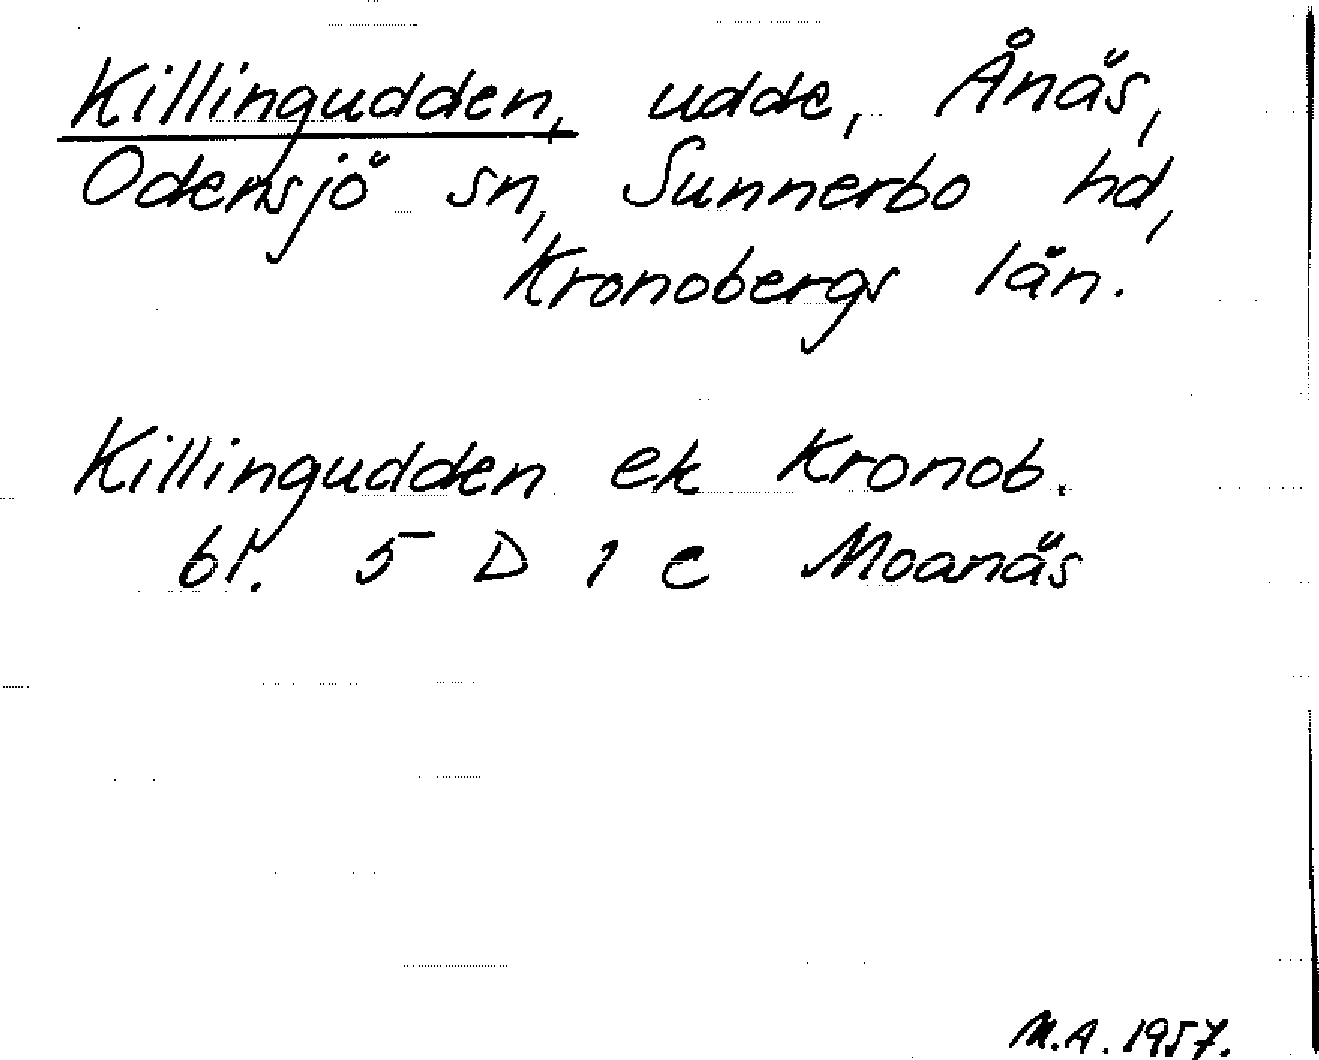 Killingudden, udde, Ånäs,
Odensjö sn, Sunnerbo hd,
Kronobergs län.
Killingudden ek Kronob.
bl. 5 D 1 c Moanäs
M.A. 1957.